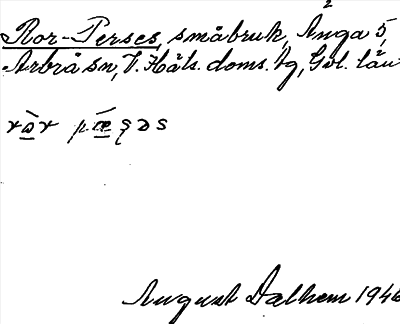 Ror-Perses, småbruk, Ånga 5,
Arbrå sn, V. Häls. doms. tg, Gvl. län
ròr pǽşəs
August Dalhem 1946